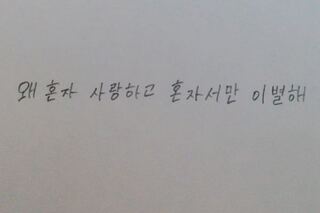 왜 혼자 사랑하고 혼자서만 이별해